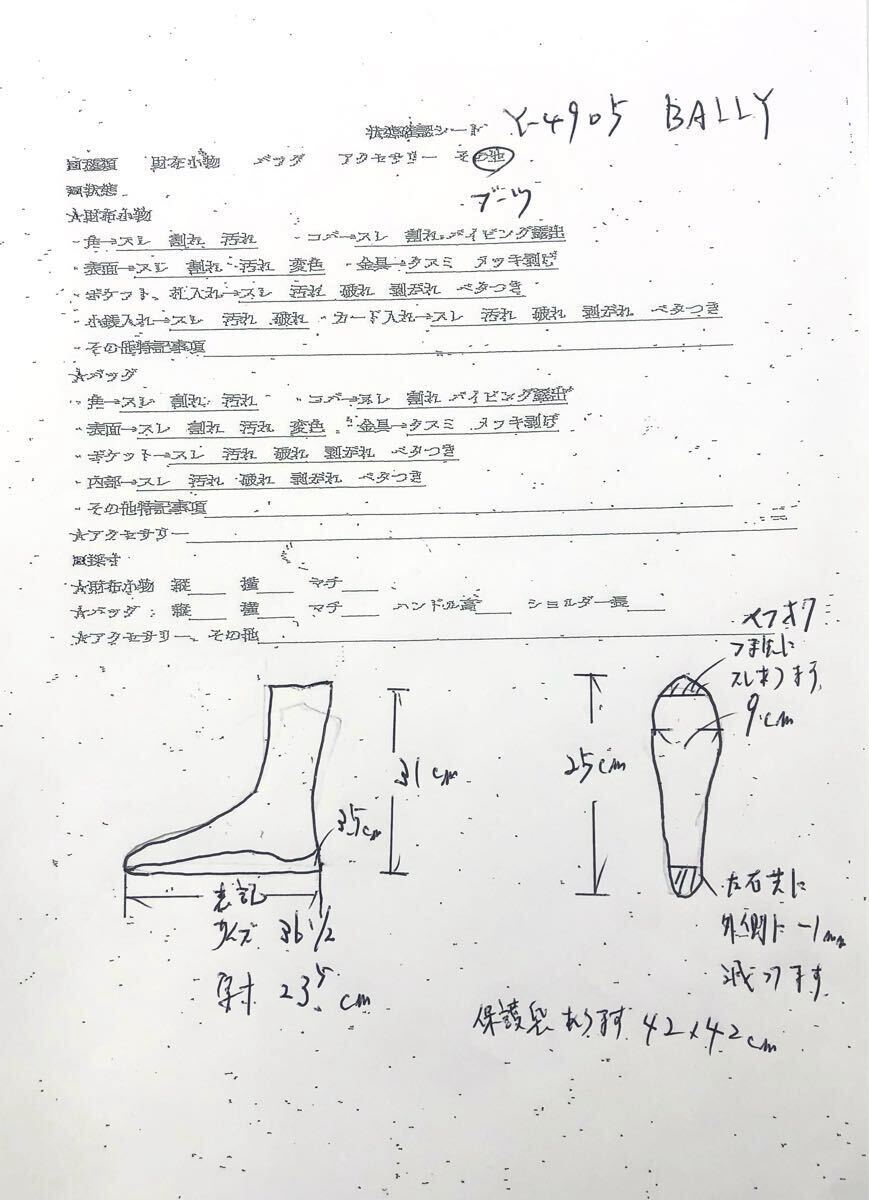 状態確認シート Y-4905 BALLY
種類 財布小物 バッグ アクセサリー その他
ブーツ
状態
☆財布小物
・角→スレ 割れ 汚れ ・コバ→スレ 割れ パイピング露出
・表面→スレ 割れ 汚れ 変色 ・金具→クスミ メッキ剥げ
・ポケット、札入れ→スレ 汚れ 破れ 剥がれ ベタつき
・小銭入れ→スレ 汚れ 破れ ・カード入れ→スレ 汚れ 破れ 剥がれ ベタつき
・その他特記事項
☆バッグ
・角→スレ 割れ 汚れ ・コバ→スレ 割れ パイピング露出
・表面→スレ 割れ 汚れ 変色 ・金具→クスミ メッキ剥げ
・ポケット→スレ 汚れ 破れ 剥がれ ベタつき
・内部→スレ 汚れ 破れ 剥がれ ベタつき
・その他特記事項
☆アクセサリー
採寸
☆財布小物 縦 横 マチ
☆バッグ 縦 横 マチ ハンドル高 ショルダー長
☆アクセサリー、その他
つま先に
スレあります
9cm
31cm
25cm
3.5cm
表記
サイズ 36 1/2
実寸 23.5cm
左右共に
外側に -1mm
減ってます
保護袋あります 42×42cm